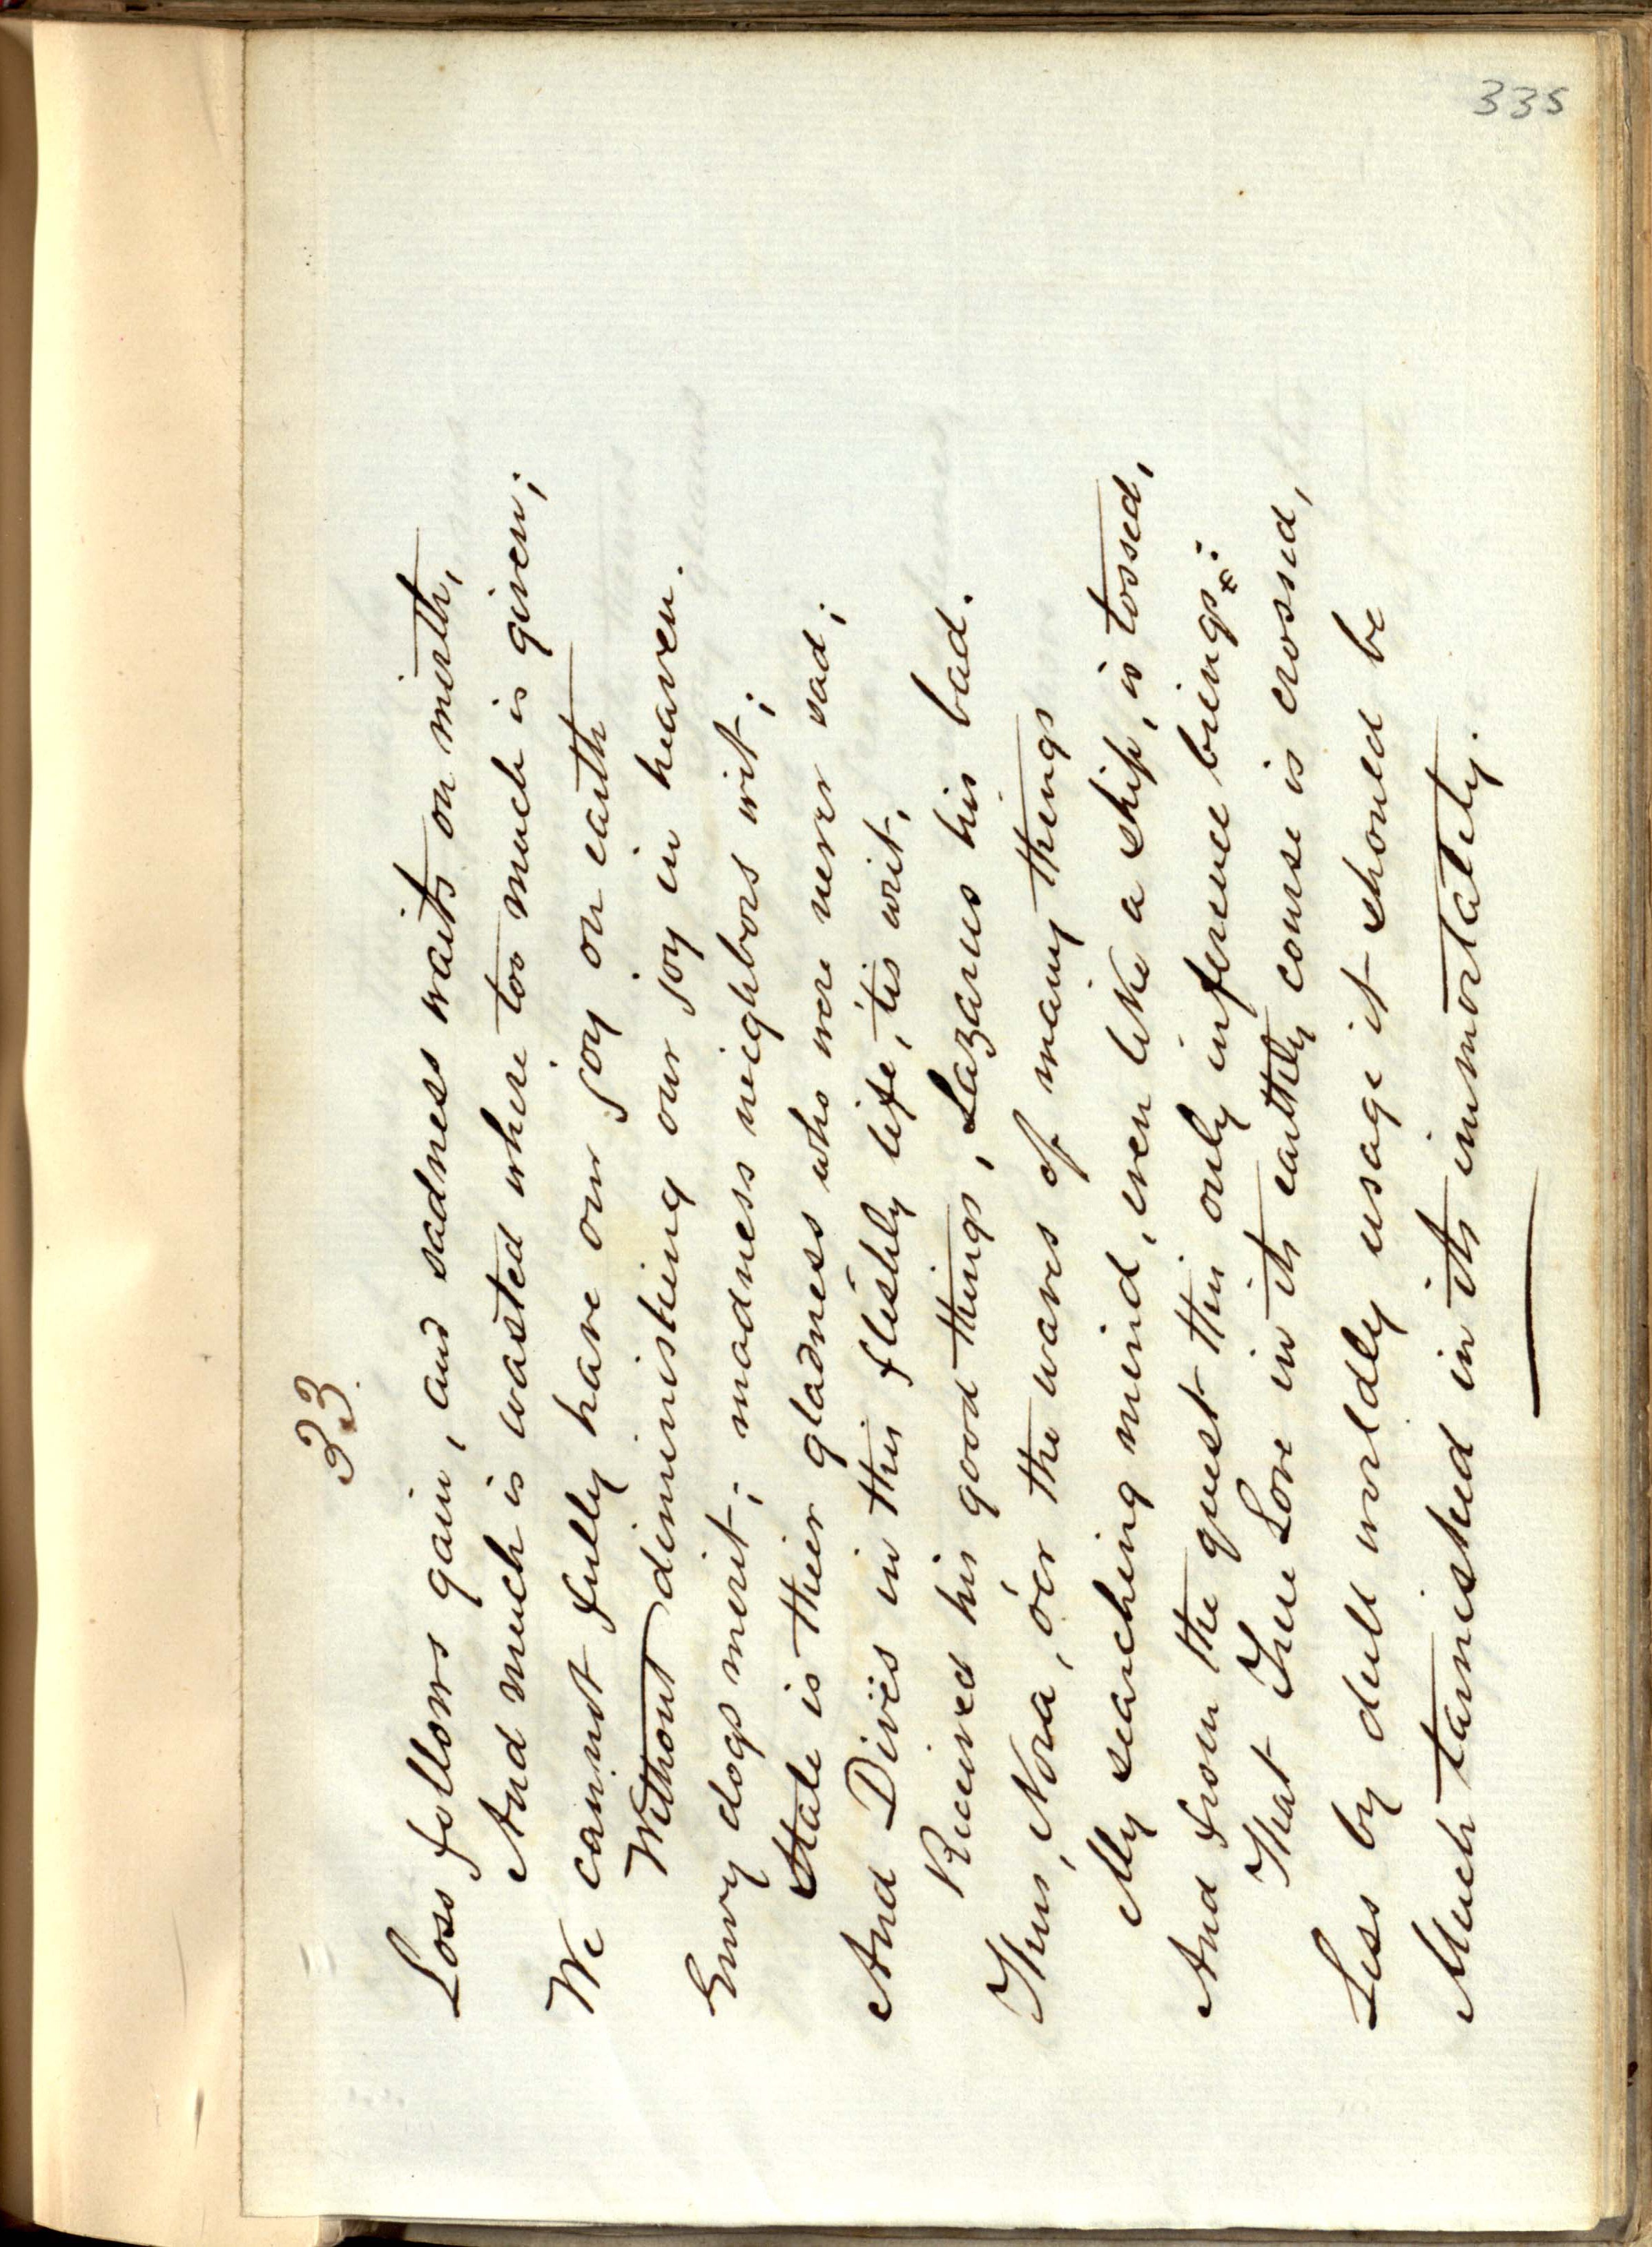 335
33.
Loss follows gain, and sadness waits on mirth,
And much is wasted where too much is given;
We cannot fully have our joy on earth
Without diminishing our joy in heaven.
Envy dogs merit; madness neighbors wit;
Stale is their gladness who were never sad;
And Divés in this fleshly life, 'tis writ,
Received his good things, Lazarus his bad.
Thus, Nora, o'er the waves of many things
My searching mind, even like a ship, is tossed,
And from the quest this only inference brings:
That True Love in its earthly course is crossed,
Less by dull worldly usage it should be
Much tarnished in its immortality.